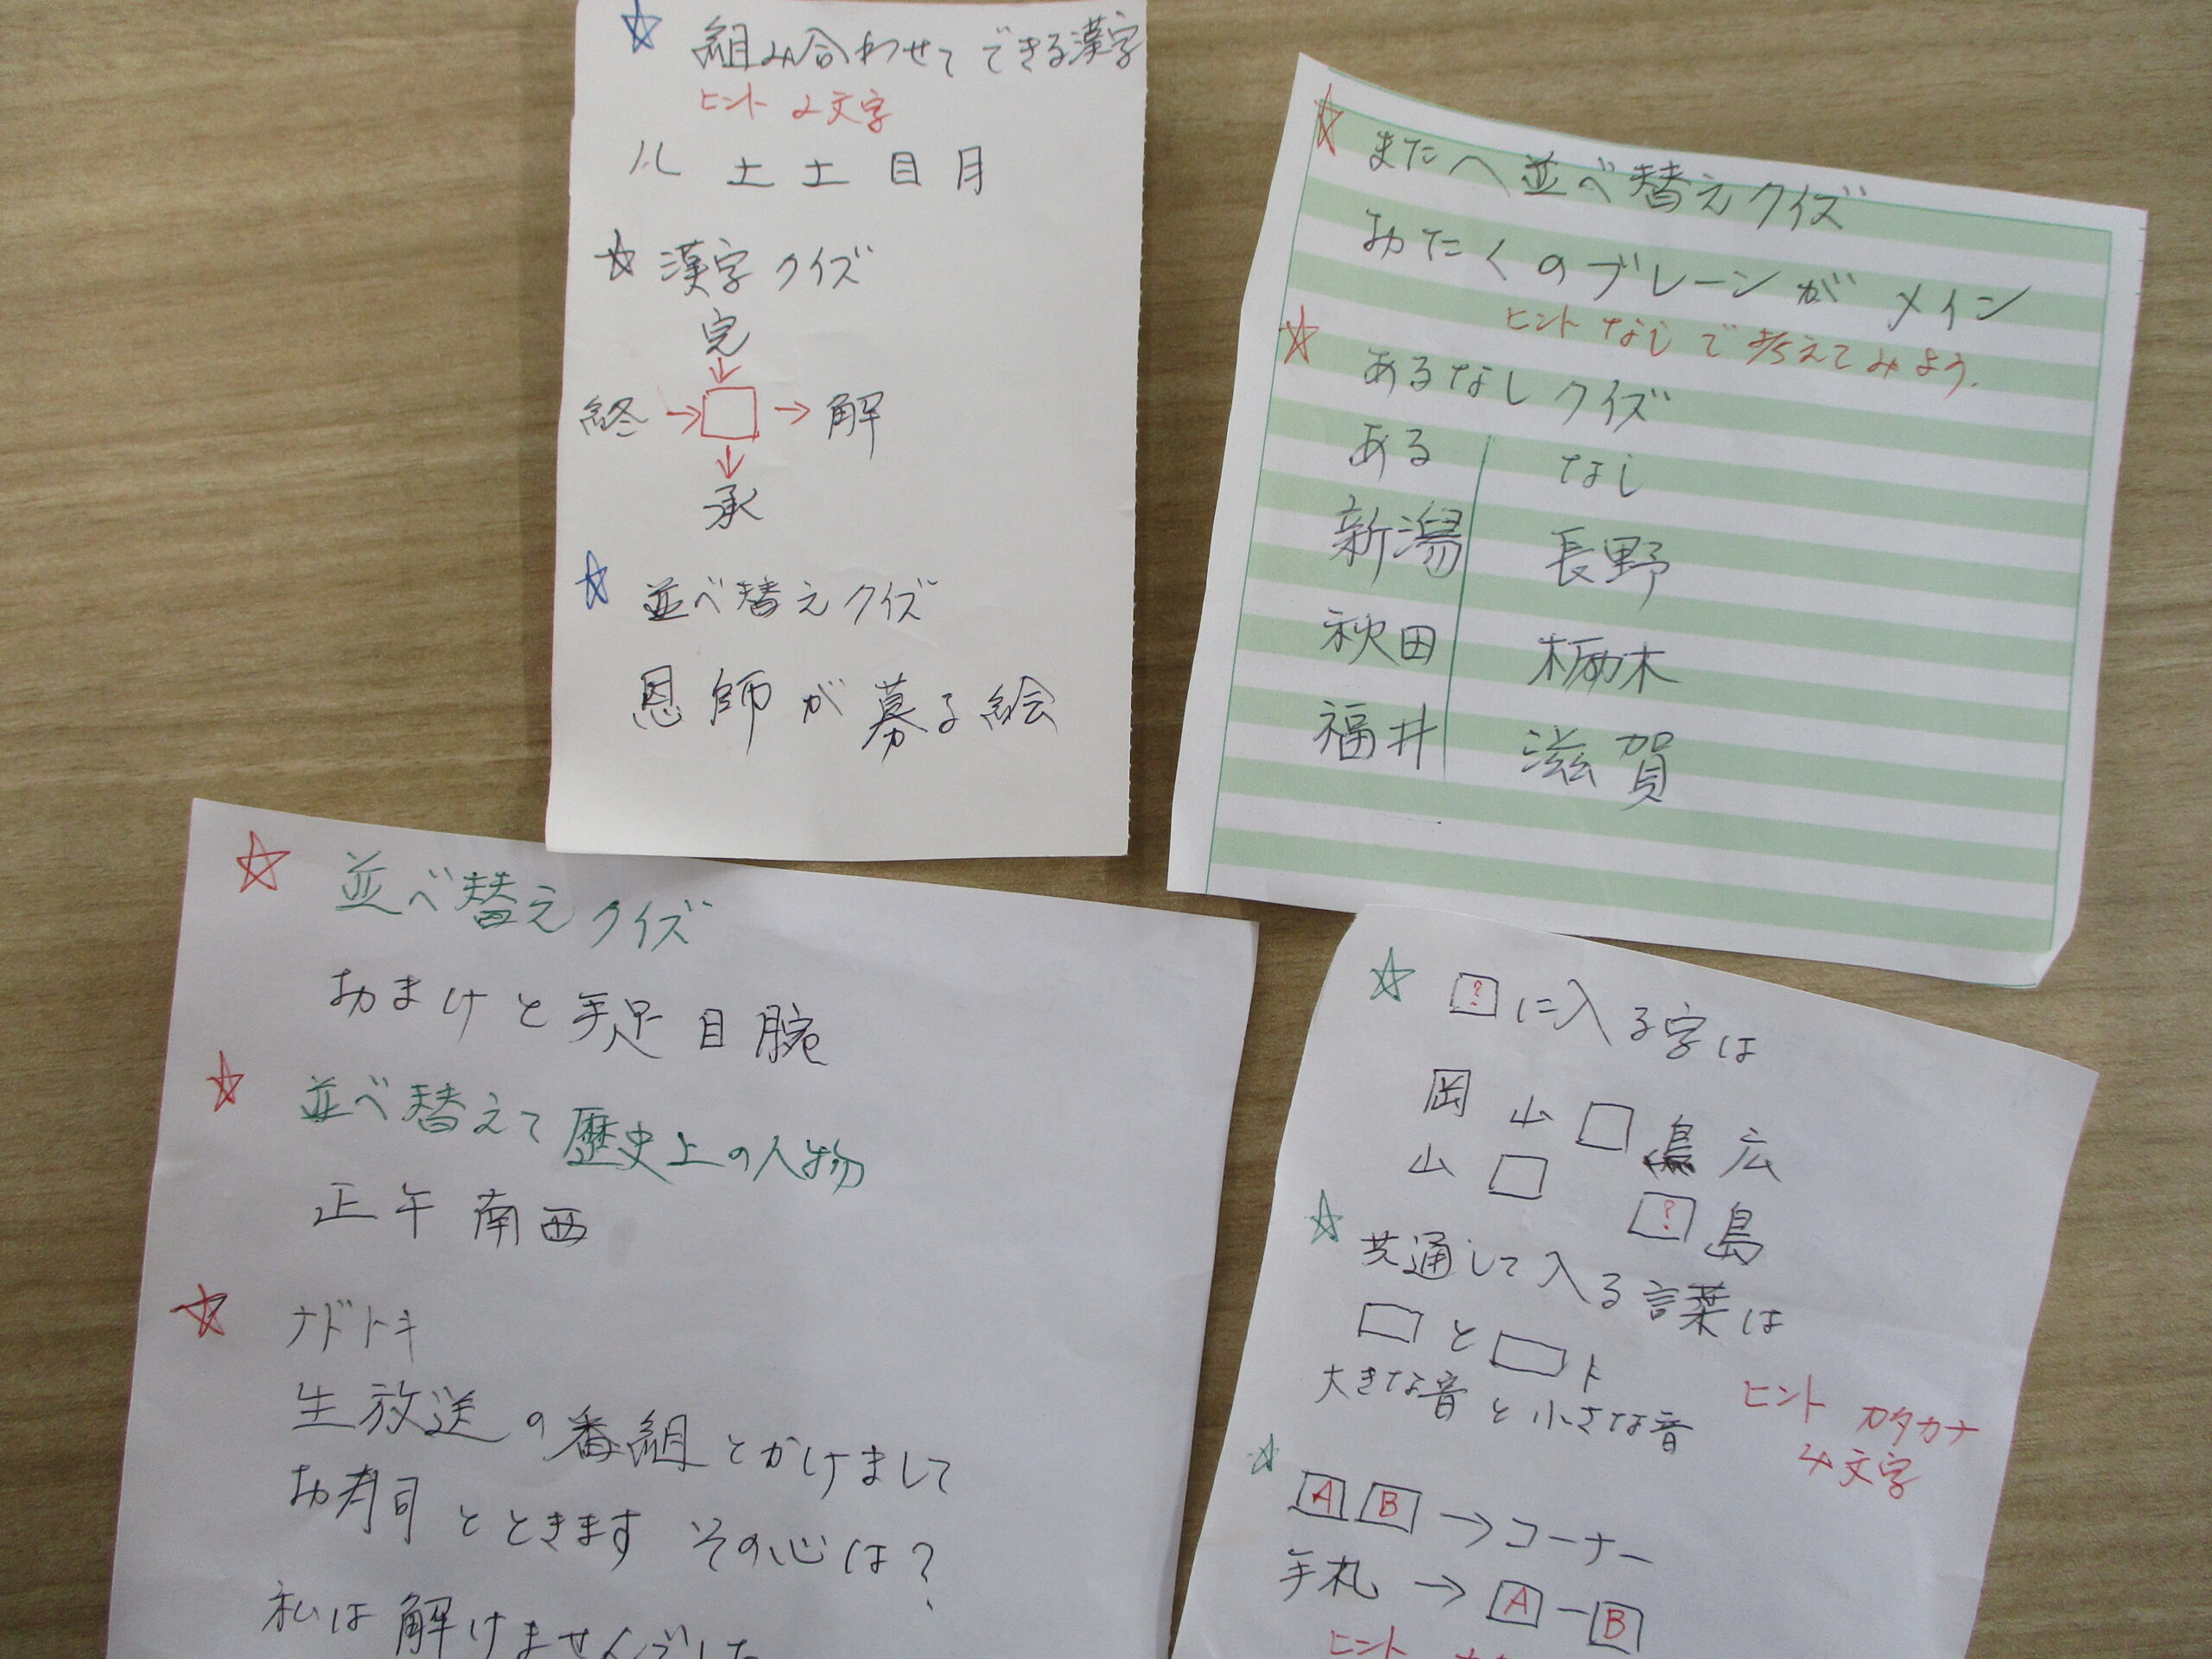 組み合わせてできる漢字
ヒント 2文字
ハ し 土 土 目 月
漢字クイズ
完
終 → □ → 解
承
並べ替えクイズ
恩師が募る絵
またへ並べ替えクイズ
おたくのブレーンがメイン
ヒントなしで考えてみよう.
あるなしクイズ
ある なし
新潟 長野
秋田 栃木
福井 滋賀
並べ替えクイズ
おまけと手足目腕
並べ替えて歴史上の人物
正午南西
ナドトキ
生放送の番組とかけまして
お寿司とときます その心は?
私は解けませんでした
?に入る字は
岡 山 □ 島 広
山 □ ? 島
共通して入る言葉は
□と□ト
大きな音と小さな音
ヒント カタカナ
み文字
A B → コーナー
手札 → A ー B
ヒント